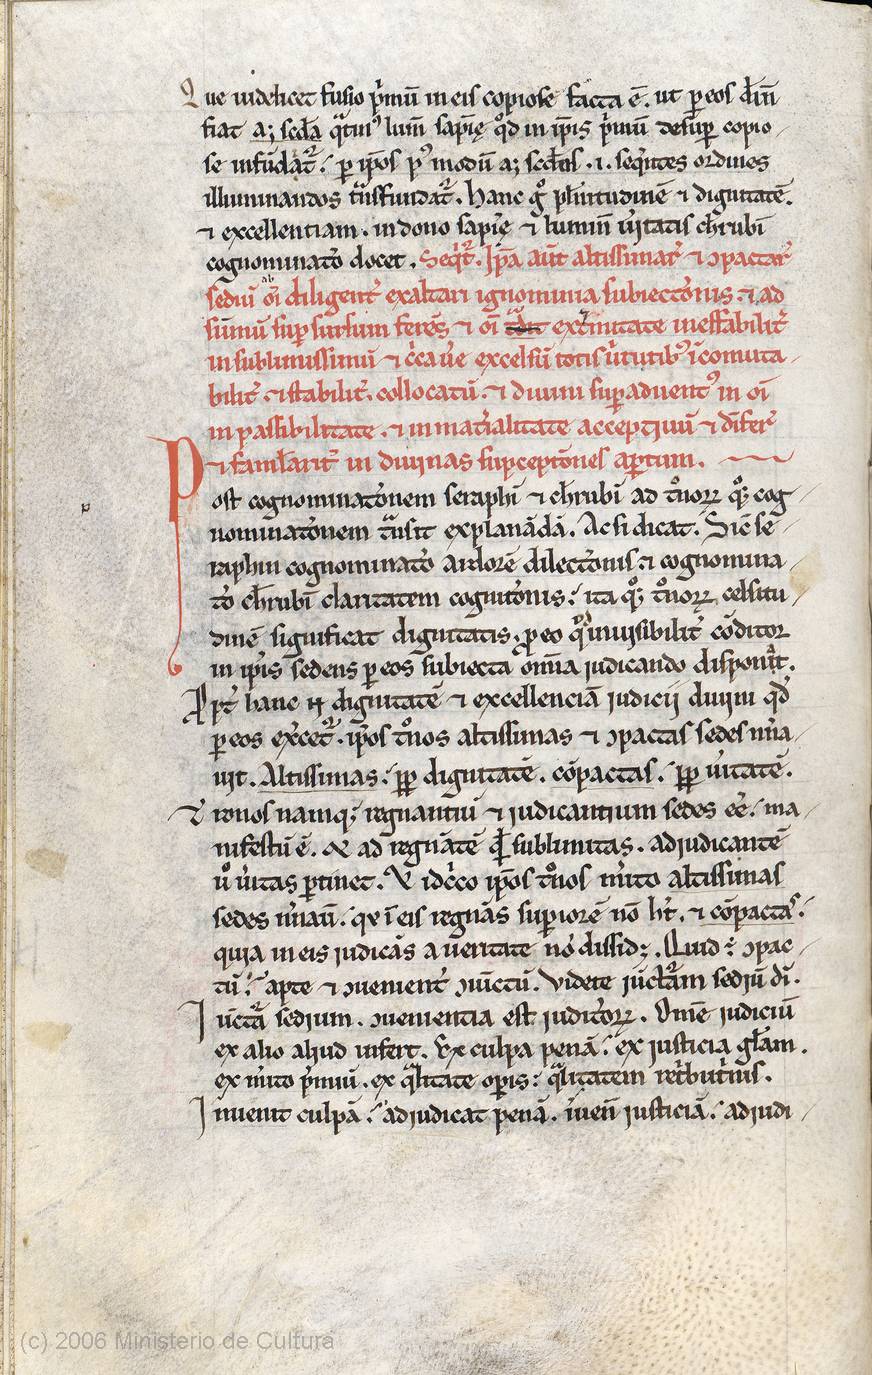 Que uidelicet fusio p̄mū in eis copiose facta ē. ut p eos din̄
fiat a; sēda q̄tin᷒ lum̄ sapię qd̄ in ip̄is p̄mū desup̄ copio
se infūdat᷑. p ip̄os p᷒ modū a; sēdas .i. seq̄ntes ordines
illuminandos t̄nsfundat᷑. Hanc g̊ pleniitudinē ⁊ dignitatē.
⁊ excellentiam. in dono sapię ⁊ lumin̄ ūitatis cherubī
cognominat̄o docet. Seqt᷑. Ip̄a aūt altissimar̄ ⁊ ɔpactar̄
sediū ab oī diligent᷑ exaltari ignominia subiect̄onis. ⁊ ad
sūmū sup̄ sursum ferēs ⁊ oī ext̄mitate ineffabilit᷑
in sublimissimū ⁊ c̄ca ūe excelsū totis ūtutib᷒ īcomuta
bilit᷑ ⁊ stabilit᷑. collocatū. ⁊ diuini sup̄aduent᷒ in oī
in passibilitate. ⁊ inmat̄ialitate acceptiuū ⁊ dīfer᷑
⁊ famil̄arit᷑ in diuinas suscept̄ones apertum.
Post cognominat̄onem seraphī ⁊ cherubī ad t̊noꝝ qꝫ cog
nominat̄onem t̄nsit explanādā. Ac si dicat. Sic̄ se
raphin cognominat̄o ardorē dilect̄onis ⁊ cognomina
t̄o cherubī claritatem cognit̄onis. ita qꝫ t̊noꝝ celsitu
dinē significat dignitatis. p eo q̄ inuisibilit᷑ cōditor
in ip̄is sedens p eos subiecta om̄ia iudicando disponit.
Ppt᷑ hanc ⁊ dignitatē ⁊ excellenciā iudicii diuini qd̄
p eos ex̄cet᷑. ip̄os t̊nos altissimas ⁊ ɔpactas sedes n̄ia
uit. Altissimas. ꝓp̄ dignitatē. cōpactas. ꝓp̄ ūitatē.
Tronos namqꝫ regnantiū ⁊ iudicantium sedes eē. ma
nifestū ē. Et ad regnātē qd̄ sublimitas. ad iudicantē
ů ūitas ptinet. Et idc̄co ip̄os t̊nos m̄ito altissimas
sedes n̄iauī. q̄ ī eis regnās sup̄iorē nō ht᷑. ⁊ cōpactas.
quia in eis iudicās a ueritate nō dissidꝫ. Quid ē ɔpac
tū. apte ⁊ ɔuenient᷑ ɔiūctū. Videte iūct̄am sediū dī.
Iūct̄a sedium. ɔuenientia est iudit̄oꝝ. Omē iudiciū
ex alio aliud infert. Ex culpa penā. ex iusticia glam.
ex m̄ito p̄miū. ex q̄litate opis. q̄litatem ret̄but̄ōis.
Inuenit culpā. adiudicat penā. īuen̄ iusticiā. adiudi
(c) 2006 Ministerio de Cultura